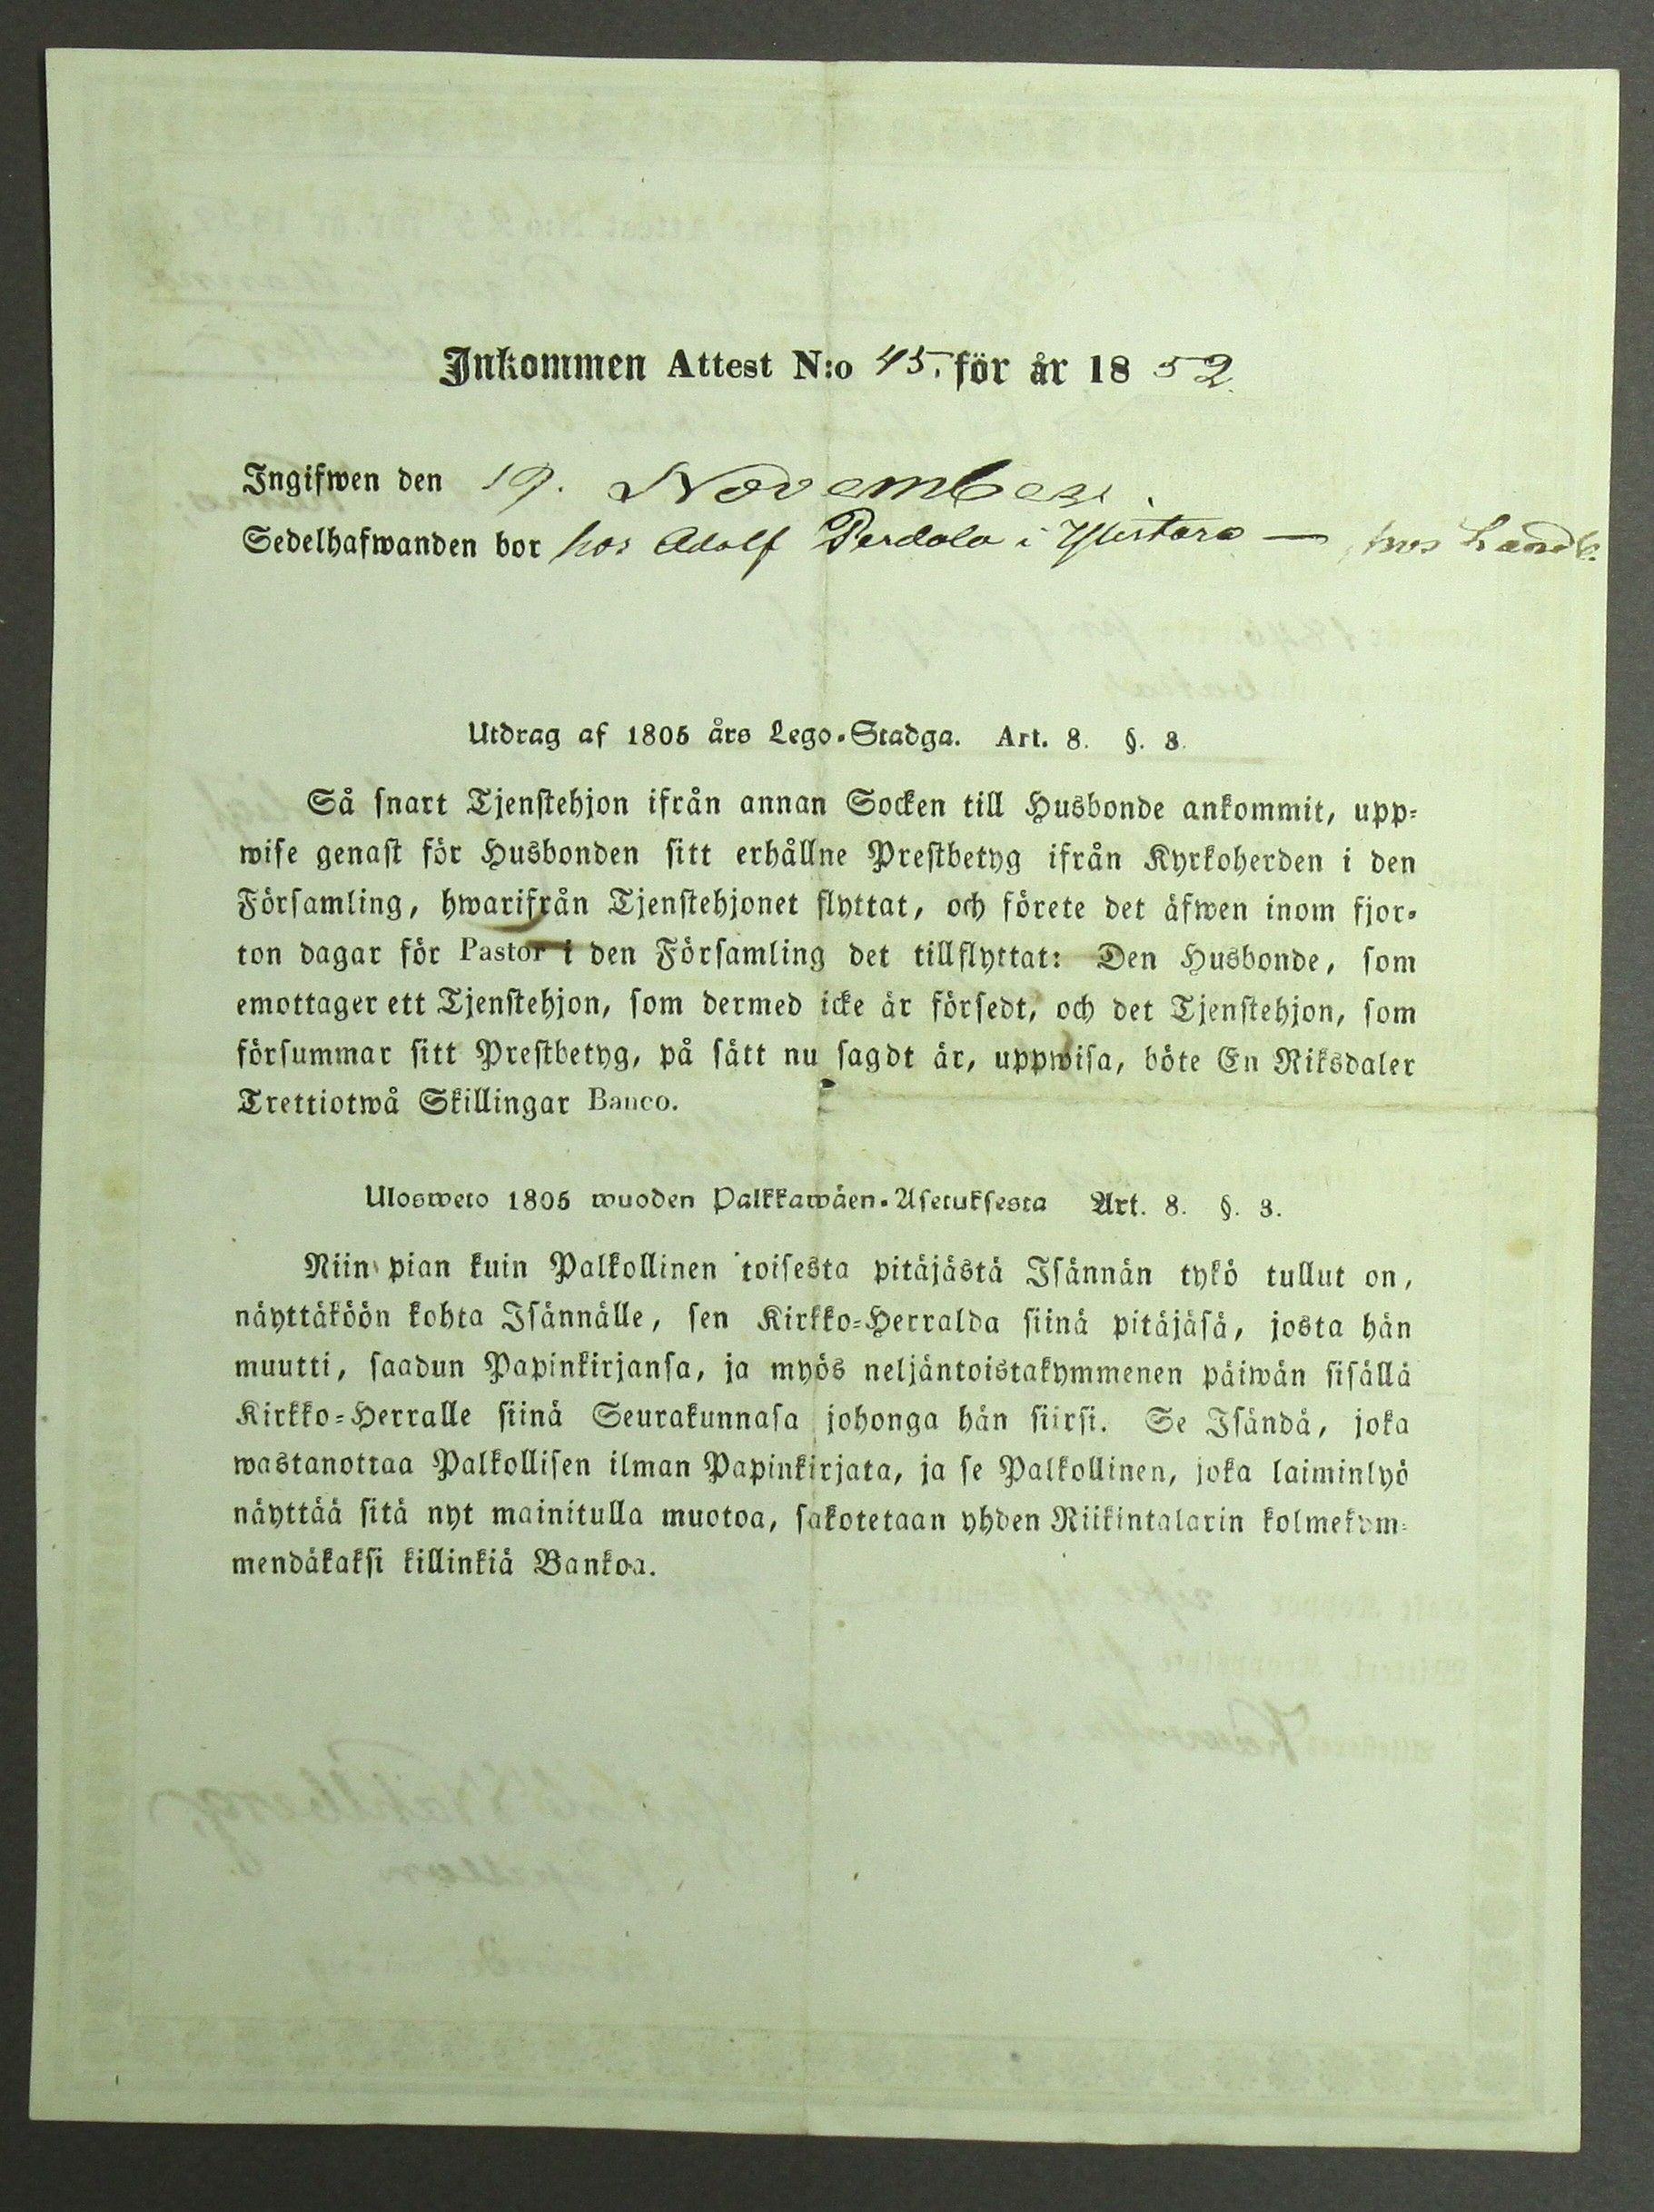 Inkommen Attest N:o 45. för år 1852.
Ingifwen den 19. November.
Sedelhafwanden bor hos Adolf Perdola i Ylistaro — hos Landb.
Utdrag af 1805 års Lego-Stadga. Art. 8. §. 3.
Så snart Tjenstehjon ifrån annan Socken till Husbonde ankommit, upp-
wise genast för Husbonden sitt erhållne Prestbetyg ifrån Kyrkoherden i den
Församling, hwarifrån Tjenstehjonet flyttat, och förete det äfwen inom fjor-
ton dagar för Pastor i den Församling det tillflyttat: Den Husbonde, som
emottager ett Tjenstehjon, som dermed icke är försedt, och det Tjenstehjon, som
försummar sitt Prestbetyg, på sätt nu sagdt är, uppwisa, böte En Riksdaler
Trettiotwå Skillingar Banco.
Ulosweto 1805 wuoden Palkkawäen-Asetuksesta Art. 8. §. 3.
Niin pian kuin Palkollinen toisesta pitäjästä Isännän tykö tullut on,
näyttäköön kohta Isännälle, sen Kirkko-Herralda siinä pitäjäsä, josta hän
muutti, saadun Papinkirjansa, ja myös neljäntoistakymmenen päiwän sisällä
Kirkko-Herralle siinä Seurakunnasa johonga hän siirsi. Se Isändä, joka
wastanottaa Palkollisen ilman Papinkirjata, ja se Palkollinen, joka laiminlyö
näyttää sitä nyt mainitulla muotoa, sakotetaan yhden Riikintalarin kolmekym-
mendäkaksi killinkiä Bankoa.